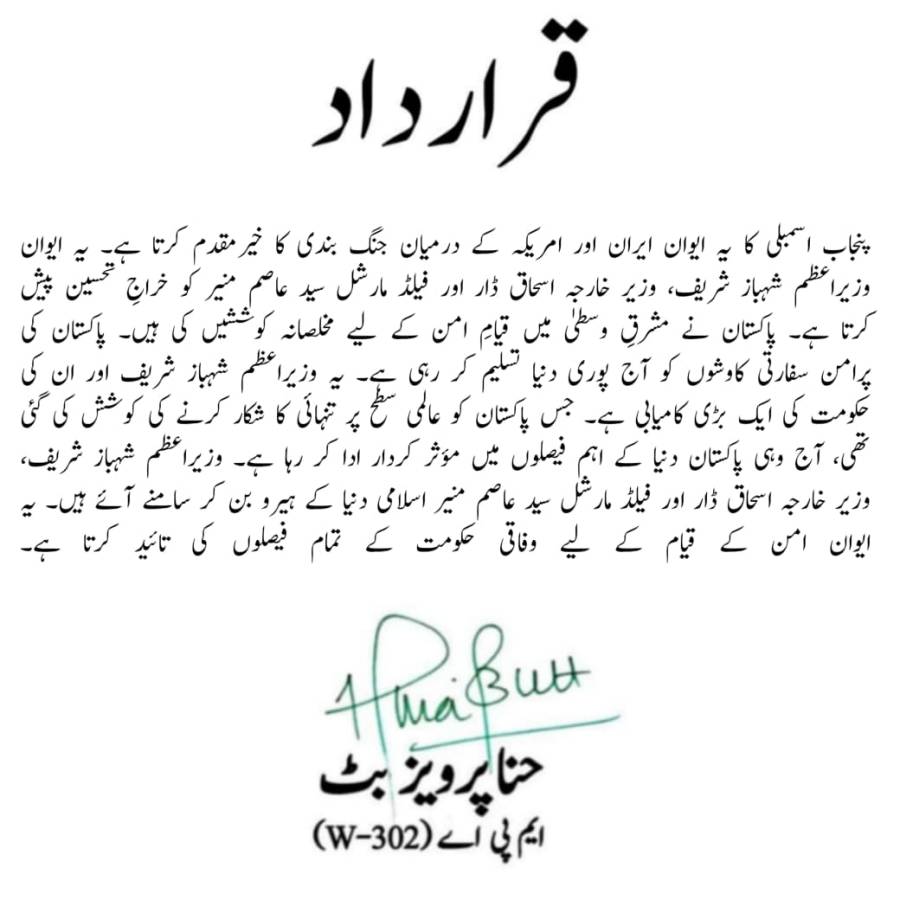 قرارداد
پنجاب اسمبلی کا یہ ایوان ایران اور امریکہ کے درمیان جنگ بندی کا خیر مقدم کرتا ہے۔ یہ ایوان
وزیراعظم شہباز شریف، وزیر خارجہ اسحاق ڈار اور فیلڈ مارشل سید عاصم منیر کو خراجِ تحسین پیش
کرتا ہے۔ پاکستان نے مشرقِ وسطیٰ میں قیامِ امن کے لیے مخلصانہ کوششیں کی ہیں۔ پاکستان کی
پرامن سفارتی کاوشوں کو آج پوری دنیا تسلیم کر رہی ہے۔ یہ وزیراعظم شہباز شریف اور ان کی
حکومت کی ایک بڑی کامیابی ہے۔ جس پاکستان کو عالمی سطح پر تنہائی کا شکار کرنے کی کوشش کی گئی
تھی، آج وہی پاکستان دنیا کے اہم فیصلوں میں مؤثر کردار ادا کر رہا ہے۔ وزیراعظم شہباز شریف،
وزیر خارجہ اسحاق ڈار اور فیلڈ مارشل سید عاصم منیر اسلامی دنیا کے ہیرو بن کر سامنے آئے ہیں۔ یہ
ایوان امن کے قیام کے لیے وفاقی حکومت کے تمام فیصلوں کی تائید کرتا ہے۔
Hina Butt
حنا پرویز بٹ
ایم پی اے (W-302)